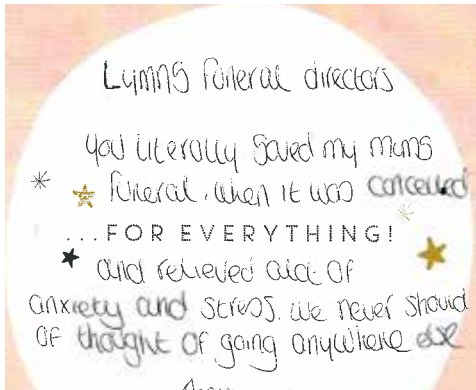 Lymns funeral directors
you literally saved my mums
funeral. when it was cancelled
...FOR EVERYTHING!
and relieved alot of
anxiety and stress. we never should
of thought of going anywhere else